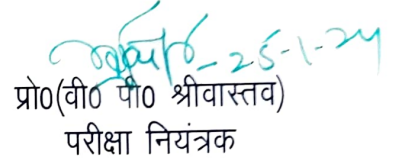 -25-1-24
प्रो0(वी0 पी0 श्रीवास्तव)
परीक्षा नियंत्रक